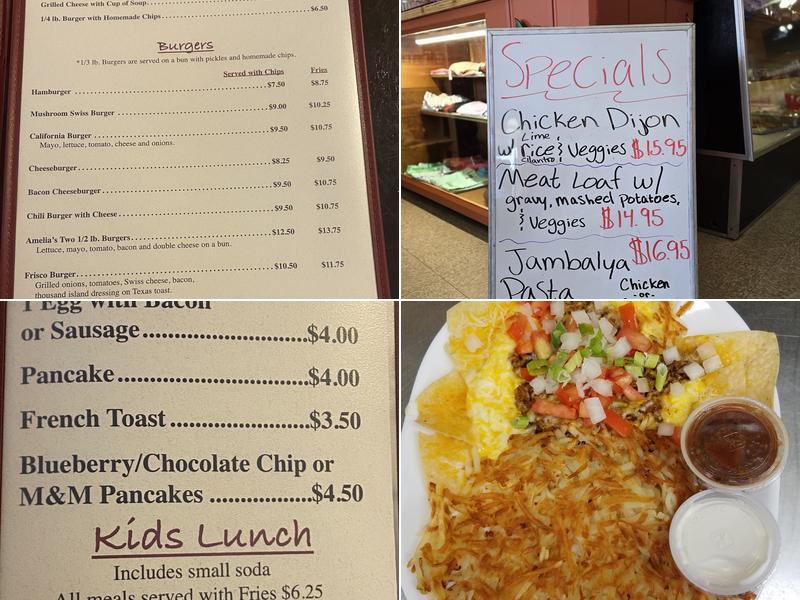 Grilled Cheese with Cup of Soup
1/4 lb. Burger with Homemade Chips $6.50
Burgers
*1/3 lb. Burgers are served on a bun with pickles and homemade chips.
Served with Chips Fries
Hamburger $7.50 $8.75
Mushroom Swiss Burger $9.00 $10.25
California Burger $9.50 $10.75
Mayo, lettuce, tomato, cheese and onions.
Cheeseburger $8.25 $9.50
Bacon Cheeseburger $9.50 $10.75
Chili Burger with Cheese $9.50 $10.75
Amelia's Two 1/2 lb. Burgers $12.50 $13.75
Lettuce, mayo, tomato, bacon and double cheese on a bun.
Frisco Burger $10.50 $11.75
Grilled onions, tomatoes, Swiss cheese, bacon,
thousand island dressing on Texas toast.
Specials
Chicken Dijon
w/ Lime cilantro rice & Veggies $15.95
Meat Loaf w/
gravy, mashed potatoes,
& Veggies $14.95
Jambalya $16.95
Pasta Chicken
or
1 Egg with Bacon
or Sausage $4.00
Pancake $4.00
French Toast $3.50
Blueberry/Chocolate Chip or
M&M Pancakes $4.50
Kids Lunch
Includes small soda
All meals served with Fries $6.25